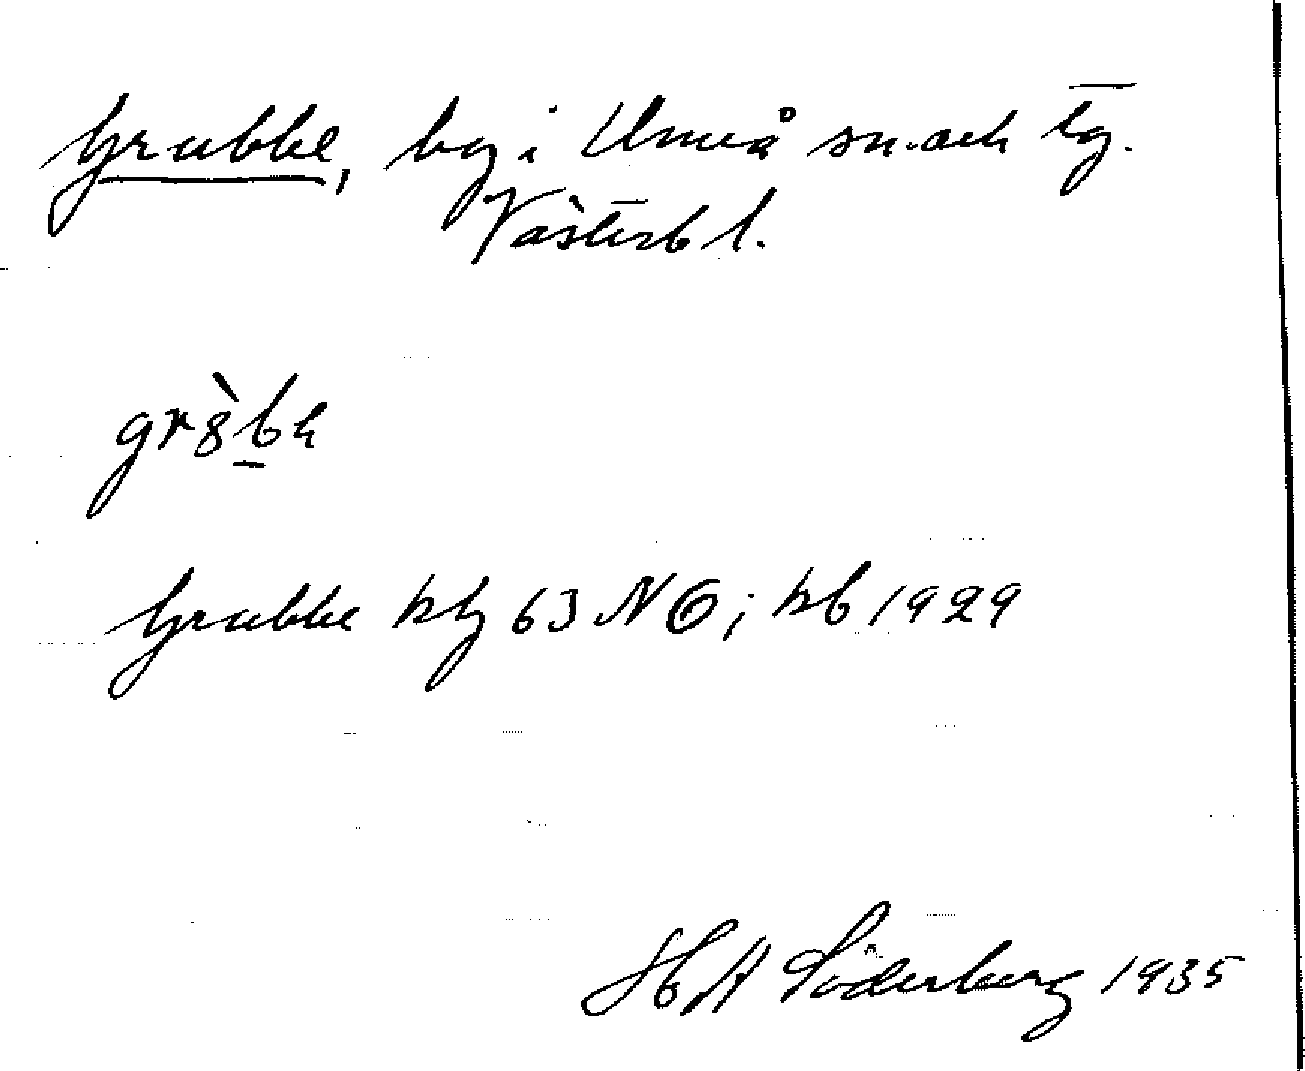 Grubbe, by i Umeå sn. och tg.
Västerb l.
Grubbe kbl 63 NO; kb 1929
H A Söderberg 1935